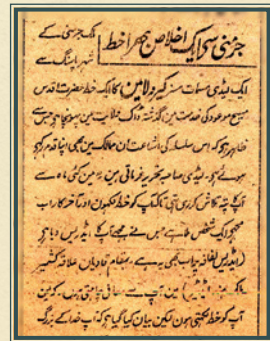 جرمنی سے ایک اخلاص بھرا خط
ملک جرمنی کے
شہر پاسنگ سے
ایک لیڈی مسمات مسز کیرولامین کا ایک خط حضرت اقدس
مسیح موعود کی خدمت میں گذشتہ ڈاک ولایت میں پہونچا ہے جس سے
ظاہر ہے کہ اس سلسلہ کی اشاعت ان ممالک میں بھی اپنا قدم
لیڈی صاحبہ تحریر فرماتی ہیں۔ میں کئی ماہ سے
آپ کا پتہ تلاش کر رہی تھی تاکہ آپ کو خط لکھوں اور آخر کار اب
مجھے ایک شخص ملا ہے جس نے مجھے آپ کا ایڈریس دیا ہے
(ایڈریس لفافہ پر اب بھی یہ ہے۔ بمقام قادیان علاقہ کشمیر
ملک ہند) میں آپ سے معافی چاہتی ہوں۔ کہ میں
آپ کو خط لکھتی ہوں لیکن بیان کیا گیا ہے کہ آپ خدا کے بزرگ